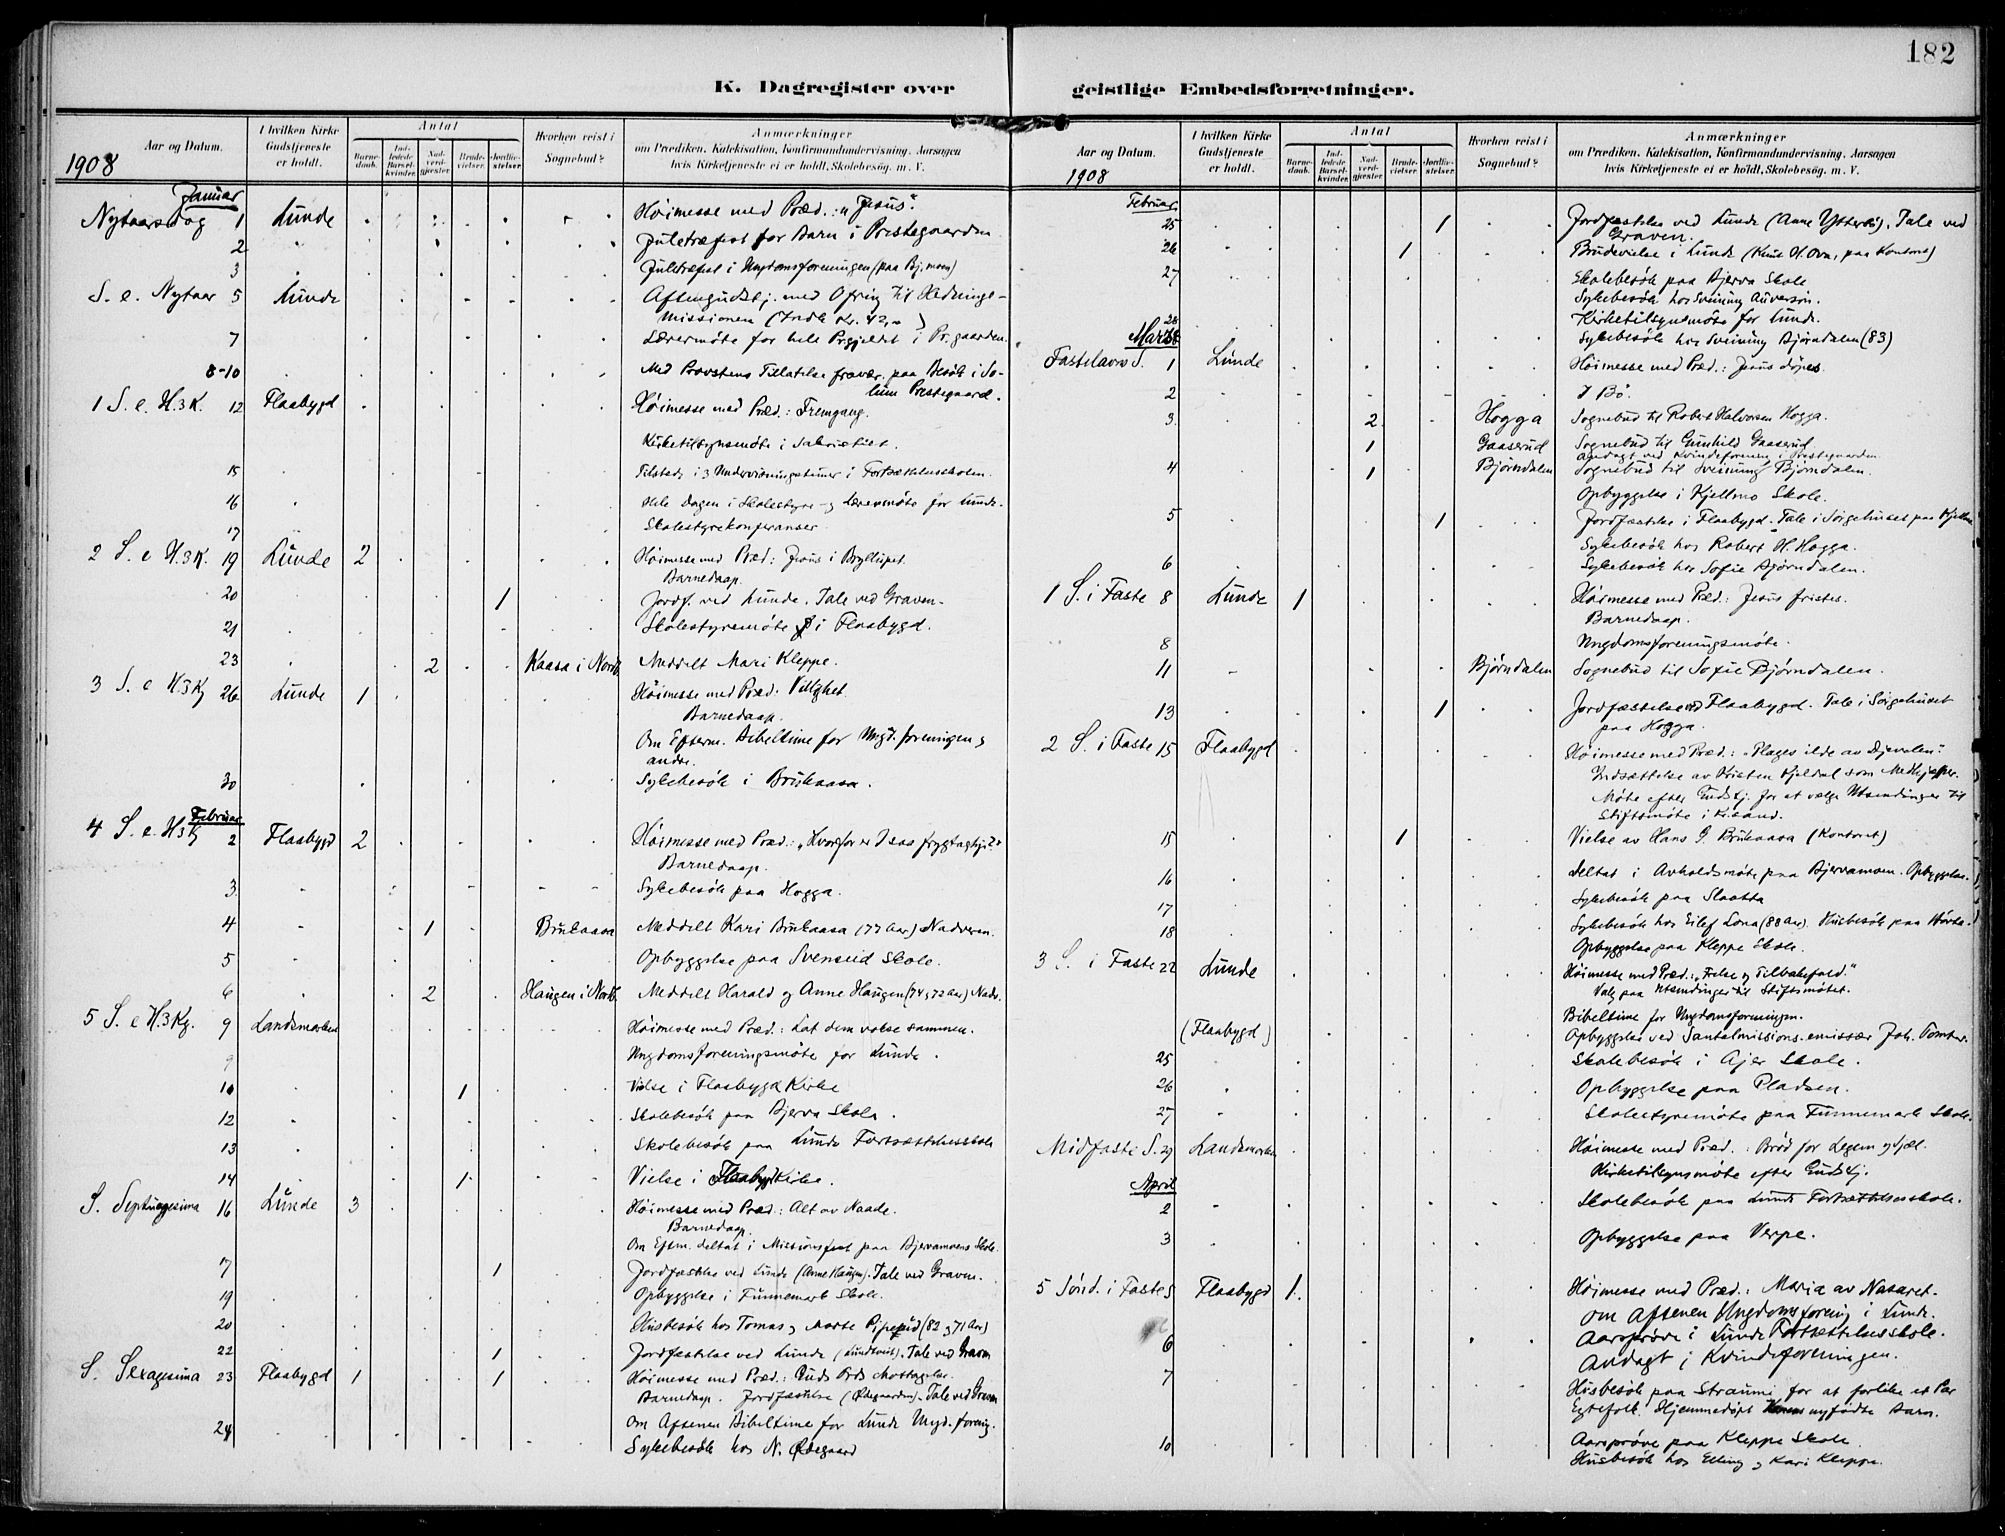 182
K. Dagregister over geistlige Embedsforretninger.
Aar og Datum.
I hvilken Kirke Gudstjeneste er holdt.
Antal
Barnedaab.
Indledede Barselkvinder.
Nadverdgjester.
Brudevielser.
Jordfæstelser.
Hvorhen reist i Sognebud?
Anmærkninger
om Prædiken. Katekisation, Konfirmandundervisning. Aarsagen
hvis Kirketjeneste ei er holdt. Skolebesøg. m. V.
1908
Januar
Nytaarsdag 1 Lunde Höimesse med Præd.: "Jesus".
2 Juletræfest for Barn i Prestegaarden
3 Juletræfest i Ungdomsforeningen (paa Bj.moen)
S. e. Nytaar 5 Lunde Aftengudstj. med Ofring til Hedninge-
missionen (Indk. kr. 42,-)
7 Lærermöte for hele Prgjeldet i Pr.gaarden.
8-10 Med Provstens Tillatelse fravær. paa Besök i So-
lum Prestegaard.
1 S. e. H.3K. 12 Flaabygd Höimesse med Præd.: Fremgang.
Kirketilsynsmöte i Sakristiet.
15 Tilstede i 3 Undervisningstimer i Fortsættelsesskolen.
16 Hele Dagen i Skolestyre- og Lærermöte for Lunde.
17 Skolestyrekonferanser.
2 S. e H.3K. 19 Lunde 2 Höimesse med Præd: Jesus i Bryllupet.
Barnedaap.
20 1 Jordf. ved Lunde. Tale ved Graven.
21 Skolestyremöte i Flaabygd.
23 2 Kaasa i Nordb. Meddelt Mari Kleppe.
3 S. e H3Kg 26 Lunde 1 Höimesse med Præd: Villighet.
Barnedaap.
Om Efterm. Bibeltime for Ungd.foreningen og
andre.
30 Sykebesök i Brukaasa.
Februar
4 S. e. H3Kg 2 Flaabygd 2 Höimesse med Præd.: "Hvorfor er I saa frygtagtige?"
Barnedaap.
3 Sykebesök paa Hogga.
4 1 Brukaasa Meddelt Kari Brukaasa (77 Aar) Nadveren.
5 Opbyggelse paa Svensud Skole.
6 2 Haugen i Nordb. Meddelt Harald og Anne Haugen (74 og 72 Aar) Nadv.
5 S. e H.3Kg. 9 Landsmarken Höimesse med Præd: Lat dem vokse sammen.
9 Ungdomsforeningsmöte for Lunde.
10 1 Vielse i Flaabygd Kirke
12 Skolebesök paa Bjerva Skole.
13 Skolebesök paa Lunde Fortsættelsesskole
14 1 Vielse i Flaabygd Kirke.
S. Septuagesima 16 Lunde 3 Höimesse med Præd: Alt av Naade.
Barnedaap.
Om Eftm. deltat i Missionsfest paa Bjervamoens Skole.
17 1 Jordfæstelse ved Lunde (Anne Haugen). Tale ved Graven.
19 Opbyggelse i Funnemark Skole.
20 Husbesök hos Tomas og Marte Pipegrd (82 og 71 Aar)
22 1 Jordfæstelse ved Lunde (Lundtveit). Tale ved Graven
S. Sexagesima 23 Flaabygd 1 1 Höimesse med Præd: Guds Ords Mottagelse.
Barnedaap. Jordfæstelse (Ödegaarden). Tale ved Graven
Om Aftenen Bibeltime for Lunde Ungd.forening.
24 Sykebesök hos N. Ödegaard
Aar og Datum.
I hvilken Kirke Gudstjeneste er holdt.
Antal
Barnedaab.
Indledede Barselkvinder.
Nadverdgjester.
Brudevielser.
Jordfæstelser.
Hvorhen reist i Sognebud?
Anmærkninger
om Prædiken. Katekisation, Konfirmandundervisning. Aarsagen
hvis Kirketjeneste ei er holdt. Skolebesøg. m. V.
1908
Februar
25 1 Jordfæstelse ved Lunde (Anne Ytterbö). Tale ved
Graven.
26 1 Brudevielse i Lunde (Knut H. Ova, paa Kontoret)
27 Skolebesök paa Bjerva Skole
Sykebesök hos Sveinung
28 Kirketilsynsmöte for Lunde.
Sykebesök hos Sveinung Bjørndalen (83)
Marts
Fastelavns S. 1 Lunde Höimesse med Præd.: Jesus döpes.
2 I Bö.
3 2 Hogga Sognebud til Robert Halvorsen Hogga.
1 Gaaserud Sognebud til Gunhild Gaaserud
Andagt ved Kvindeforening i Prestegaarden.
4 1 Bjørndalen Sognebud til Sveinung Bjørndalen.
Opbyggelse i Kjellmo Skole.
5 1 Jordfæstelse i Flaabygd. Tale i Sörgehuset paa
Sykebesök hos Robert H. Hogga.
6 Sykebesök hos Sofie Bjørndalen.
1 S. i Faste 8 Lunde 1 Höimesse med Præd.: Jesus fristes.
Barnedaap.
8 Ungdomsforeningsmöte.
11 Bjørndalen Sognebud til Sofie Bjørndalen.
13 1 Jordfæstelse ved Flaabygd. Tale i Sörgehuset
paa Hogga.
2 S. i Faste 15 Flaabygd Höimesse med Præd.: "Plages ilde av Djævelen".
Indsættelse av Kristen Kjeldal som Medhjelper.
Möte efter Gudstj. for at vælge Utsendinger til
Stiftsmöte i Kr.sand.
15 1 Vielse av Hans G. Brukaasa (Kontoret)
16 Deltat i Avholdsmöte paa Bjervamoen. Opbyggelse.
17 Sykebesök paa Slaatta
18 Sykebesök hos Eilef Lona (88 Aar). Husbesök paa
Opbyggelse paa Kleppe Skole.
3 S. i Faste 22 Lunde Höimesse med Præd.: "Frelse og Tilbakefald."
Valg paa Utsendinger til Stiftsmötet.
Bibeltime for Ungdomsforeningen.
(Flaabygd) Opbyggelse ved Santalmissions.emissær Joh.
25 Skolebesök i Ajer Skole.
26 Opbyggelse paa Pladsen.
27 Skolestyremöte paa Funnemark Skole.
Midfaste S. 29 Landsmarken Höimesse med Præd.: Bröd for Legem og Sjæl.
Kirketilsynsmöte efter Gudstj.
April
2 Skolebesök paa Lunde Fortsættelsesskole.
3 Opbyggelse paa Verpe.
5 Sönd. i Faste 5 Flaabygd 1. Höimesse med Præd.: Maria av Nasaret.
Om Aftenen Ungdomsforening i Lunde.
6 Aarspröve i Lunde Fortsættelsesskole.
Andagt i Kvindeforeningen.
7 Husbesök paa Straume for at forlike et Par
Egtefolk. Hjemmedöpt nyfödte Barn.
10 Aarspröve paa Kleppe Skole
Husbesök hos Elling og Kari Kleppe.